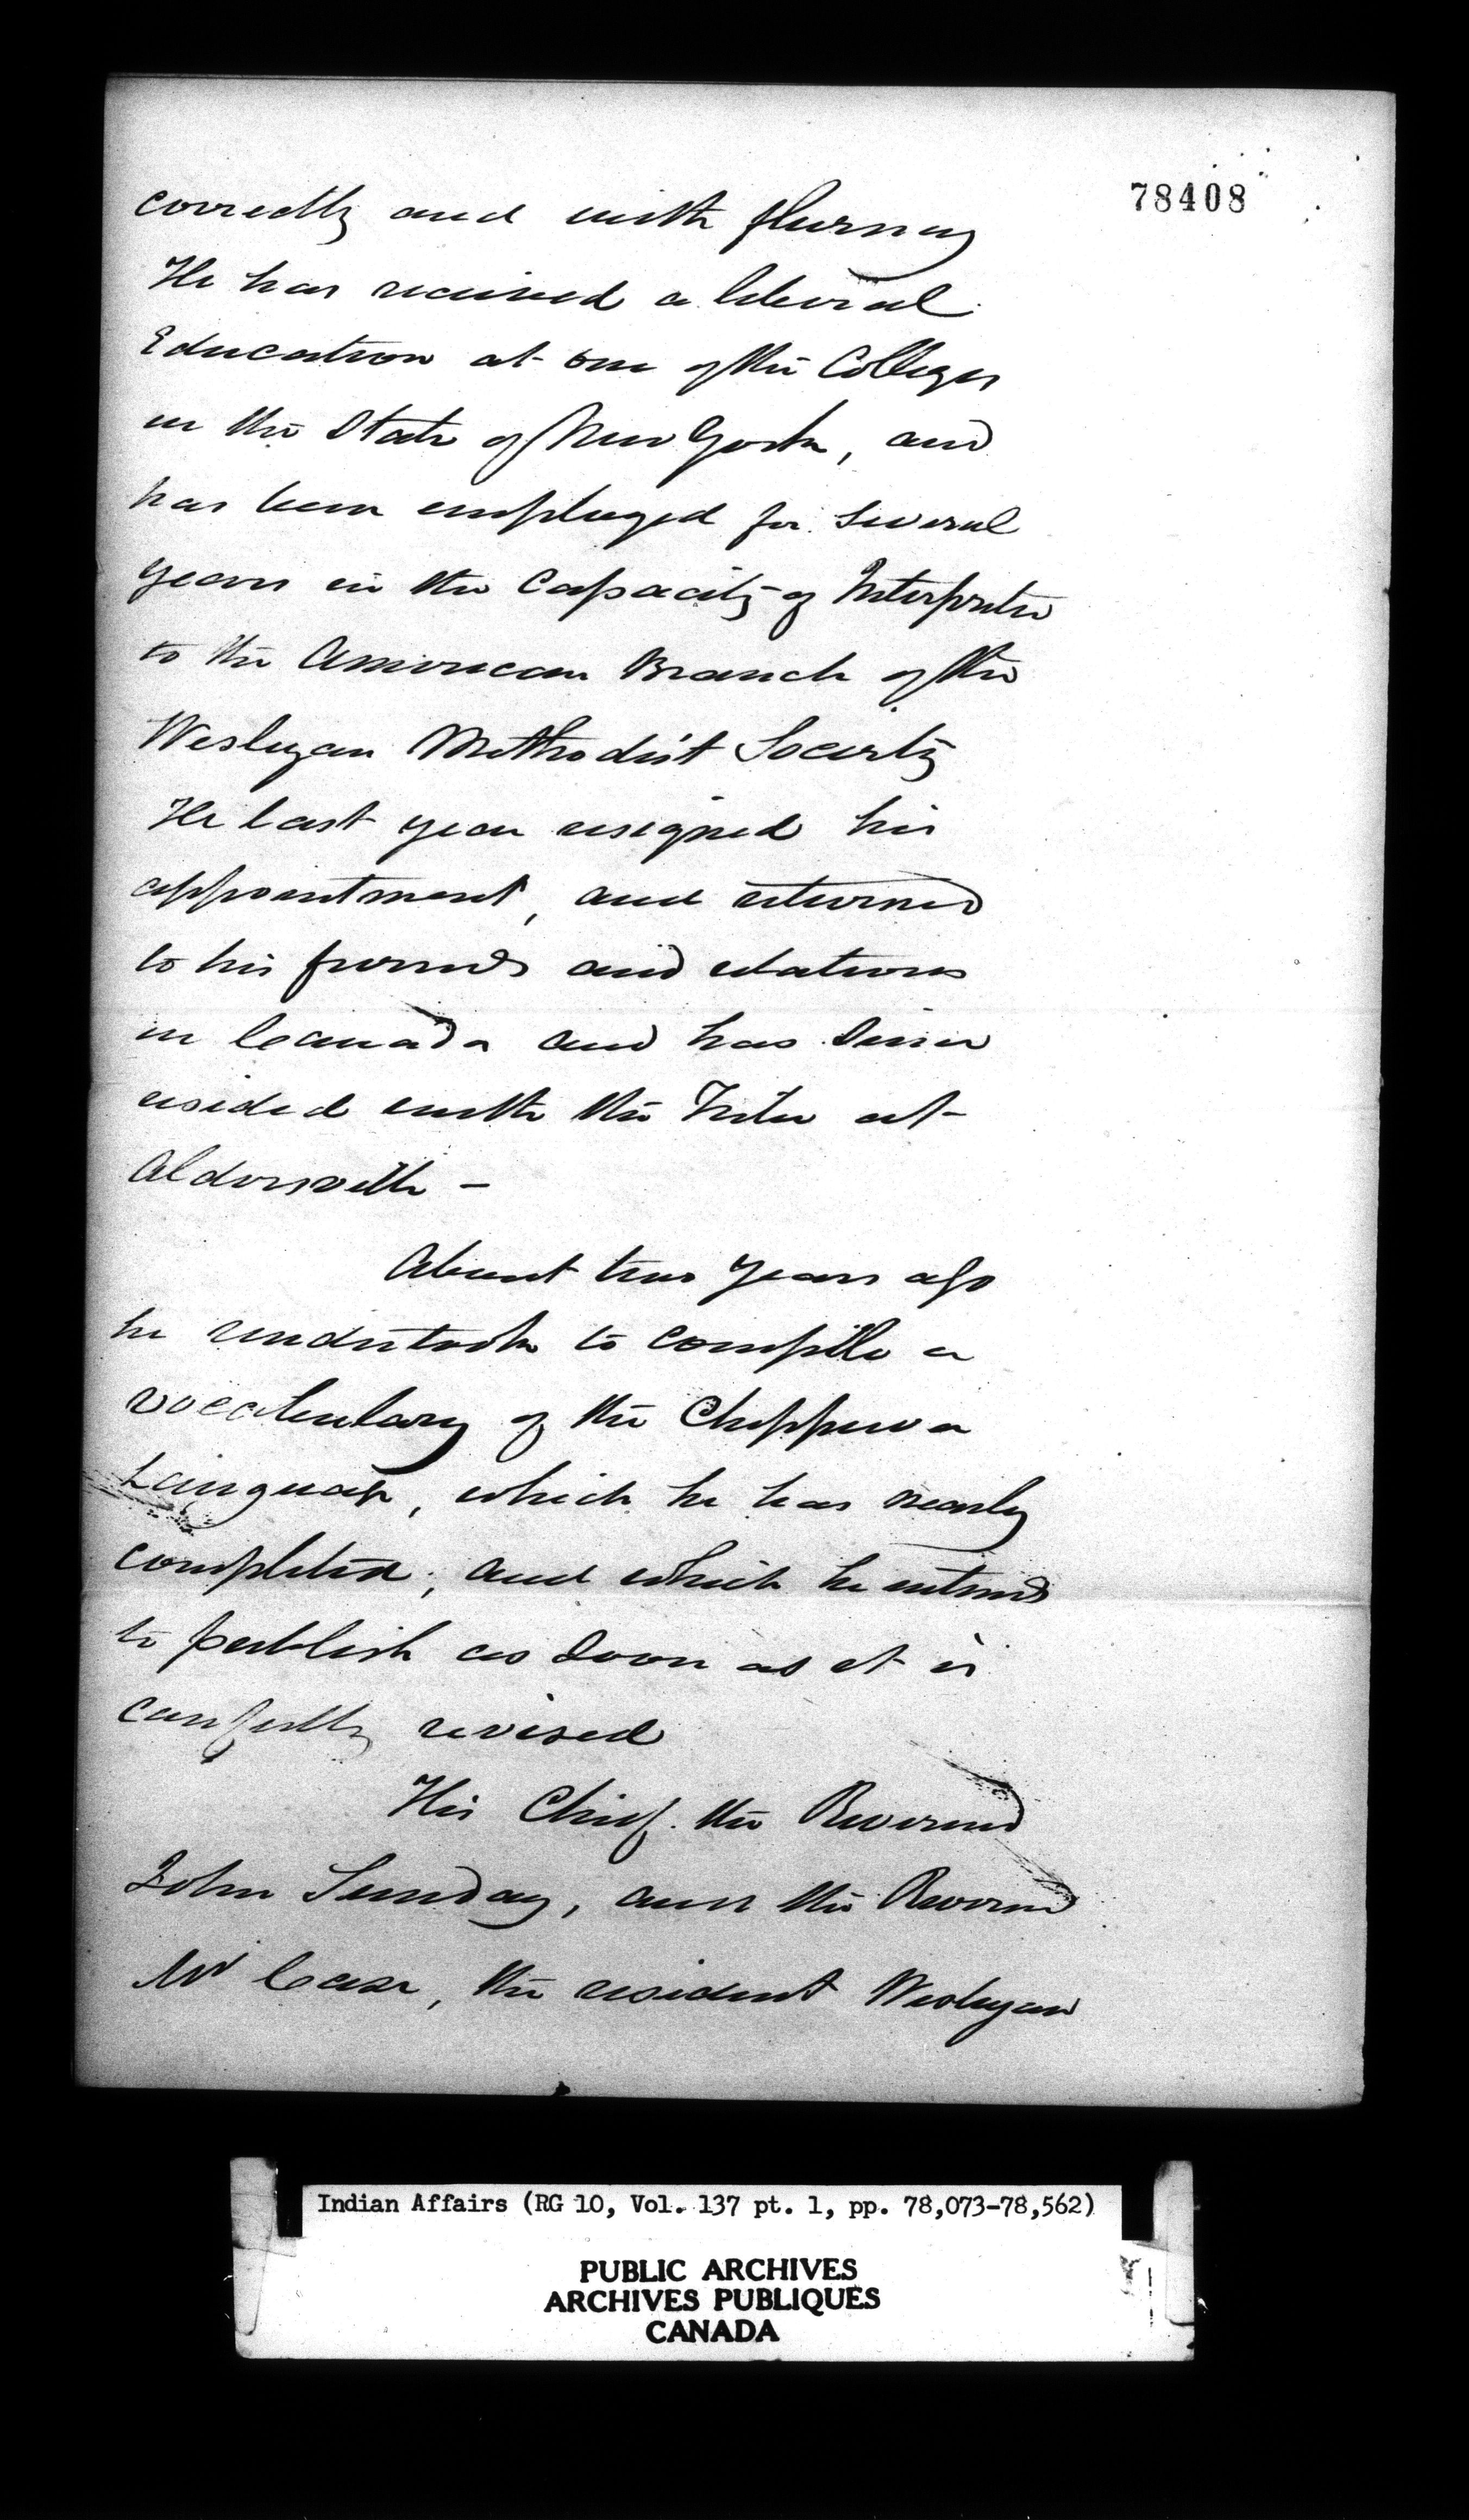 78408
correctly and with fluency
He has received a liberal
Education at one of the Colleges
in the State of New York, and
has been employed for several
years in the Capacity of Interpreter
to the American Branch of the
Wesleyan Methodist Society
He last year resigned his
appointment, and returned
to his friends and relations
in Canada and has since
resided with the Tribe at
Aldersville –
About two years ago
he undertook to compile a
vocabulary of the Chippewa
Language, which he has nearly
completed, and which he intends
to publish as soon as it is
carefully revised
His Chief the Reverend
John Sunday, and the Reverend
Mr Case, the resident Wesleyan
Indian Affairs (RG 10, Vol. 137 pt. 1, pp. 78,073-78,562)
PUBLIC ARCHIVES
ARCHIVES PUBLIQUES
CANADA